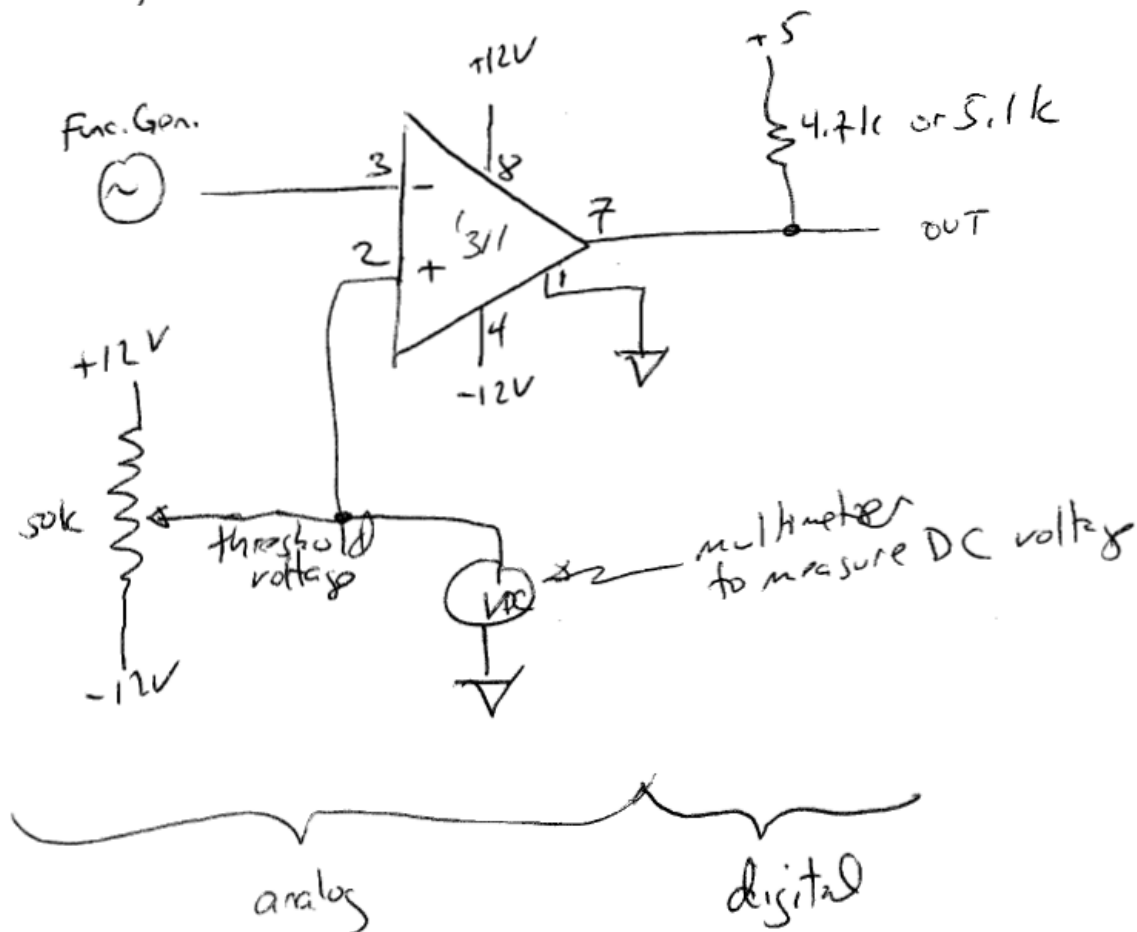 +5
+12V
Func. Gen.
4.7k or 5.1k
~
3
-
8
7
OUT
'311
2
+
1
4
-12V
+12V
50k
threshold
voltage
multimeter
to measure DC voltage
VDC
-12V
analog
digital